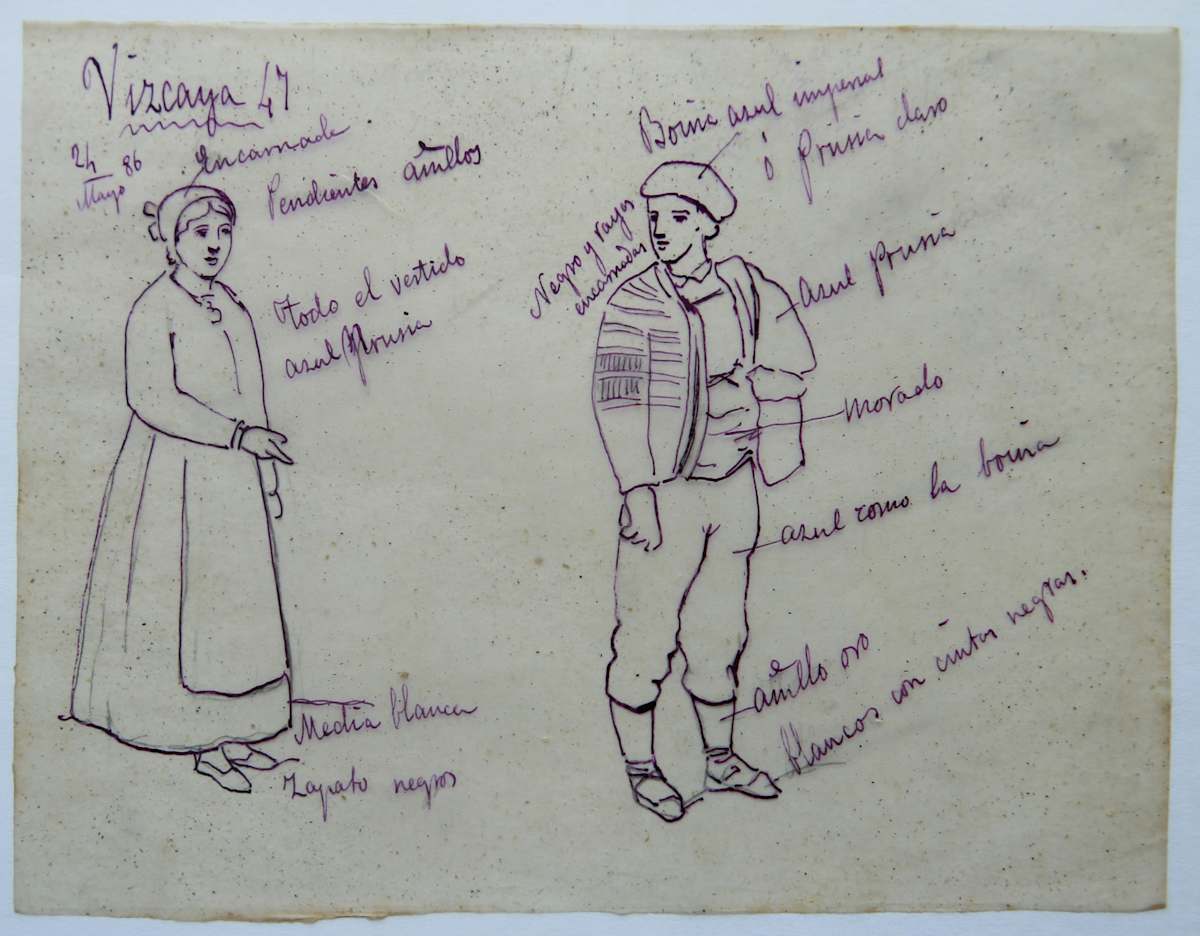 Vizcaya 47
24
Mayo 86
Encarnada
Pendientes amllos
Todo el vestido
azul Prusia
Media blanca
Zapato negros
Boina azul imperial
ó Prusia claro
Negro y rayas
encarnadas
azul Prusia
morado
azul como la boina
amllo oro
blancos con cintas negras.